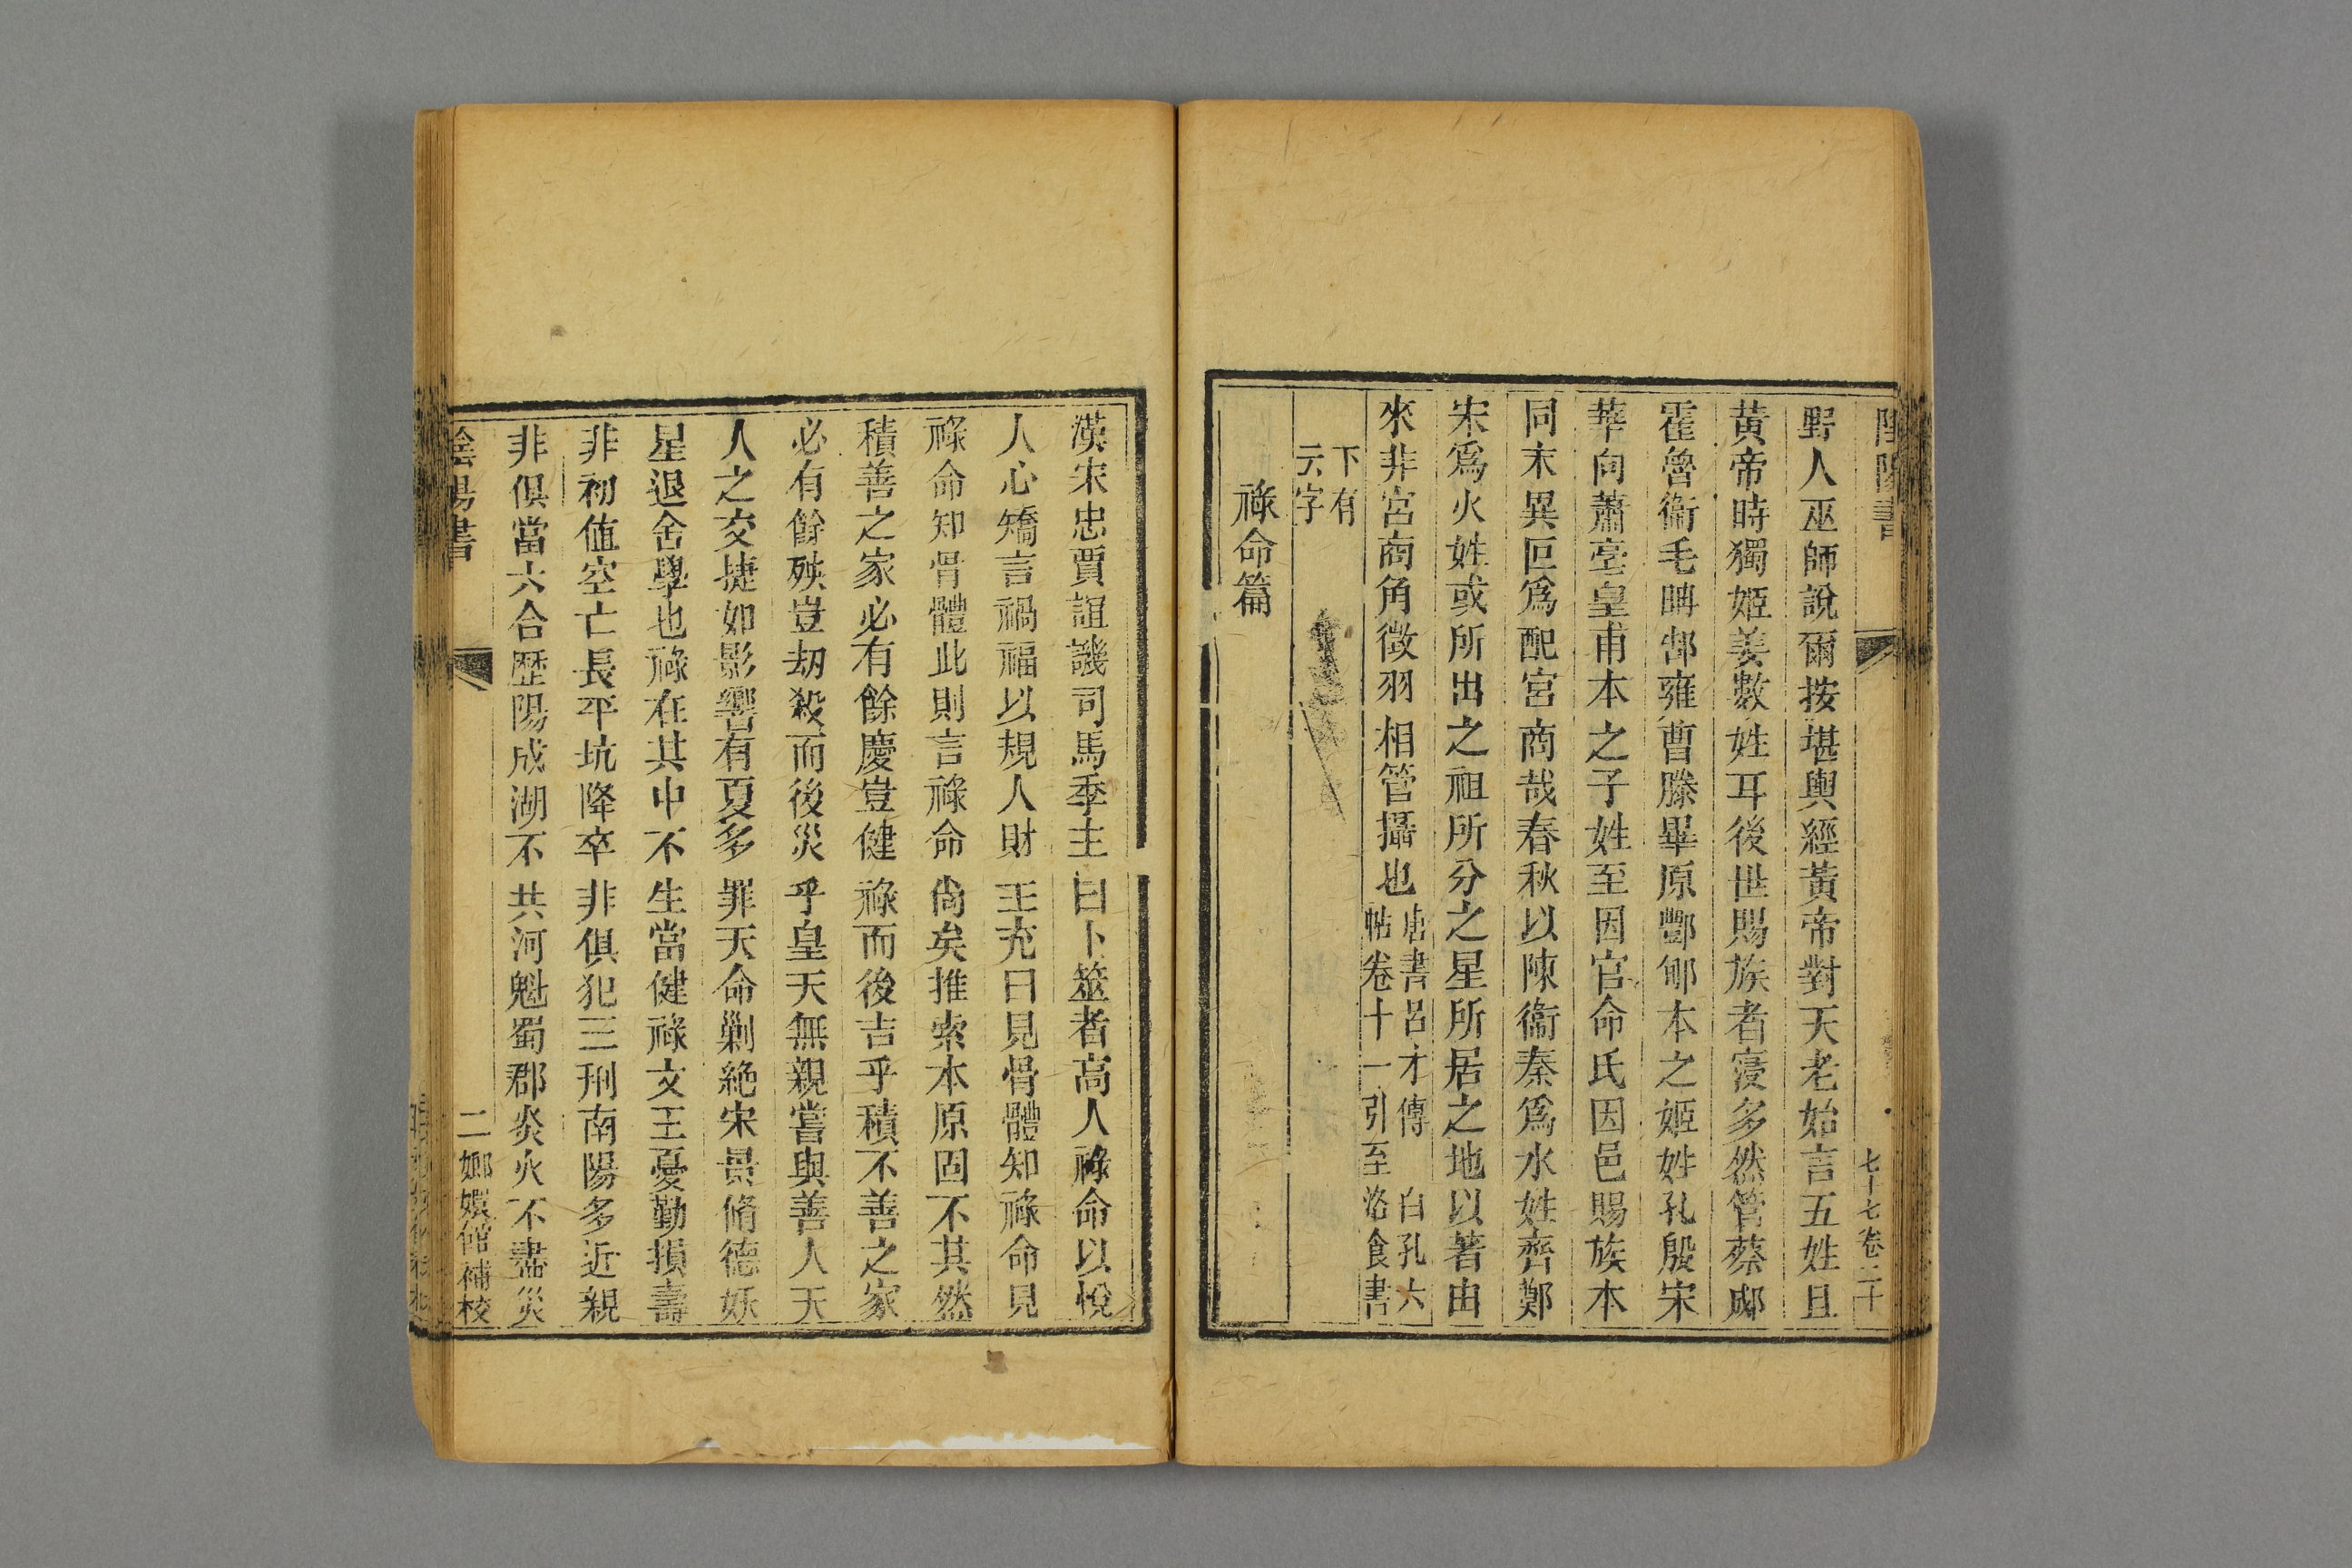 陰陽書
七十七卷三十
野人巫師說爾按堪輿經黃帝對天老始言五姓且
黃帝時獨姬姜數姓耳後世賜族者寖多然管蔡郕
霍魯衞毛聃郜雍曹滕畢原酆郇本之姬姓孔殷宋
華向蕭亳皇甫本之子姓至因官命氏因邑賜族本
同末異叵爲配宮商哉春秋以陳衞秦爲水姓齊鄭
宋爲火姓或所出之祖所分之星所居之地以著由
來非宮商角徵羽相管攝也唐書呂才傳 白孔六
帖卷十一引至 洛食書
下有
云字
祿命篇
漢宋忠賈誼譏司馬季主曰卜筮者高人祿命以悅
人心矯言禍福以規人財王充曰見骨體知祿命見
祿命知骨體此則言祿命尙矣推索本原固不其然
積善之家必有餘慶豈健祿而後吉乎積不善之家
必有餘殃豈劫殺而後災乎皇天無親嘗與善人天
人之交捷如影響有夏多罪天命剿絶宋景脩德妖
星退舍學也祿在其中不生當健祿文王憂勤損壽
非初値空亡長平坑降卒非俱犯三刑南陽多近親
非俱當六合歷陽成湖不共河魁蜀郡炎火不盡災
陰陽書
二嫏嬛館補校